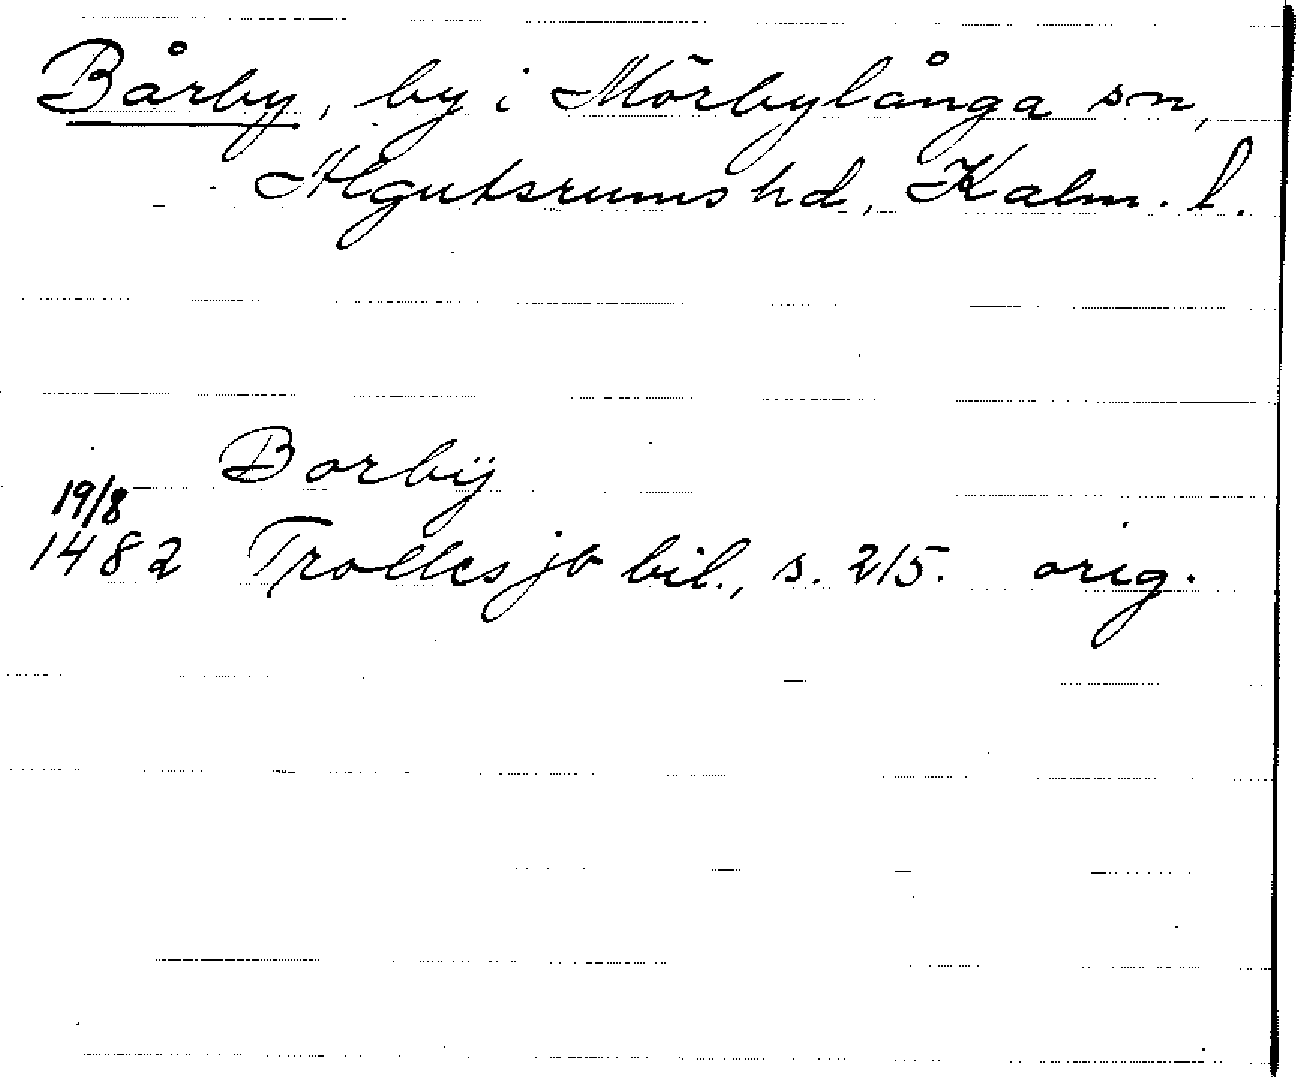 Bårby, by i Mörbylånga sn,
Algutsrums hd, Kalm. l.
Borbÿ
19/8
1482 Trolles jb bil., s. 215. orig.